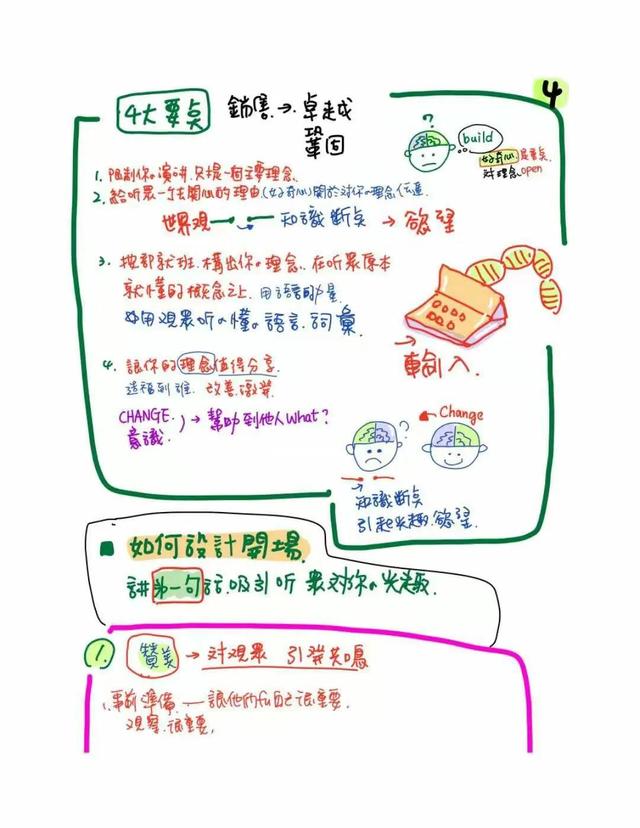 4
4大要点
銷售 → 卓越
鞏固
?
build
好奇心 是重点
对理念 open
1. 限制你の演講,只提一個主要理念.
2. 給听眾一个去関心的理由(好奇心)
世界观 知識断点 → 慾望
3. 按部就班.構出你の理念.在听眾原本
就懂的概念之上.用語言的力量
妙用观眾听の懂の語言.詞彙
→輸入.
4. 讓你的理念值得分享.
造福到誰.改善激發
CHANGE. → 幫助到他人What?
意識.
← Change
?
→
知識断点
引起兴趣.慾望.
■ 如何設計開場
講第一句話.吸引听眾对你の兴趣.
1. 贊美 → 对观眾 引發共鳴
1. 事前準備 — 讓他們fu自己很重要.
观察.很重要.